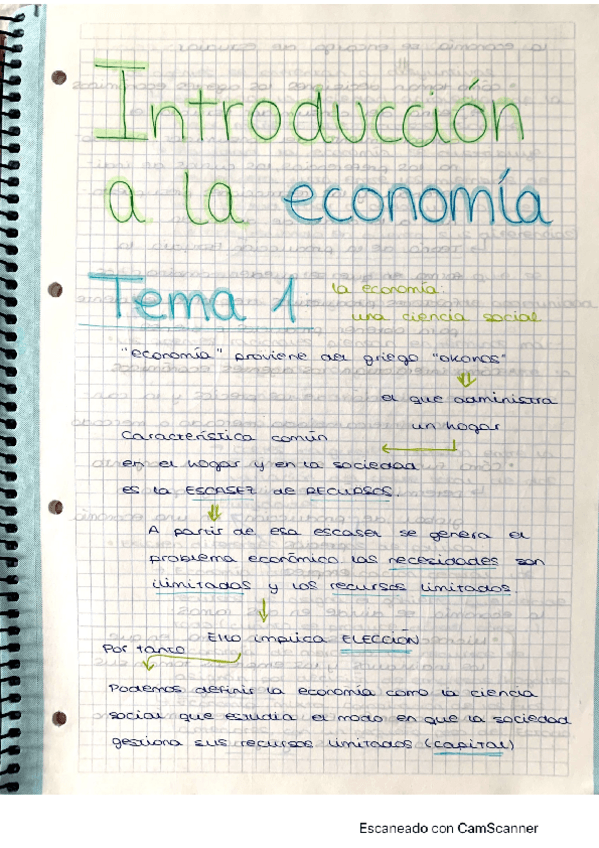 Introducción
a la economía
Tema 1
la economía:
una ciencia social
"economía" proviene del griego "okonos"
el que administra
un hogar
Característica común
en el hogar y en la sociedad
es la ESCASEZ de RECURSOS.
A partir de esa escasez se genera el
problema económico. las necesidades son
ilimitadas y los recursos limitados
Ello implica ELECCIÓN
Por tanto
Podemos definir la economía como la ciencia
social que estudia el modo en que la sociedad
gestiona sus recursos limitados (capital)
Escaneado con CamScanner